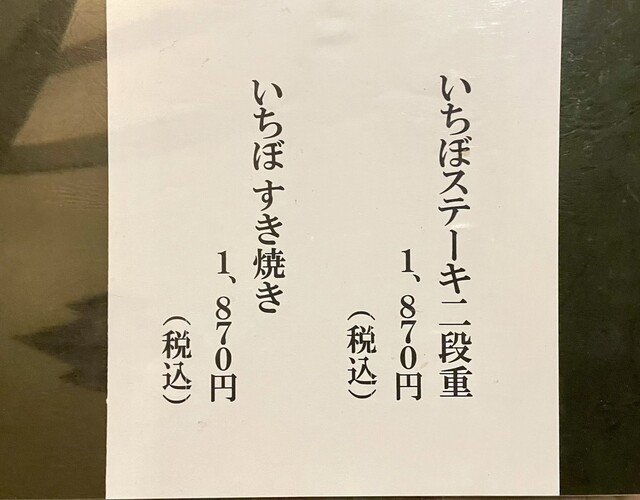 いちぼステーキ二段重
1、870円
（税込）
いちぼすき焼き
1、870円
（税込）